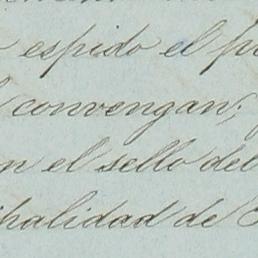 espido el
convengan;
en el sello del
palidad de